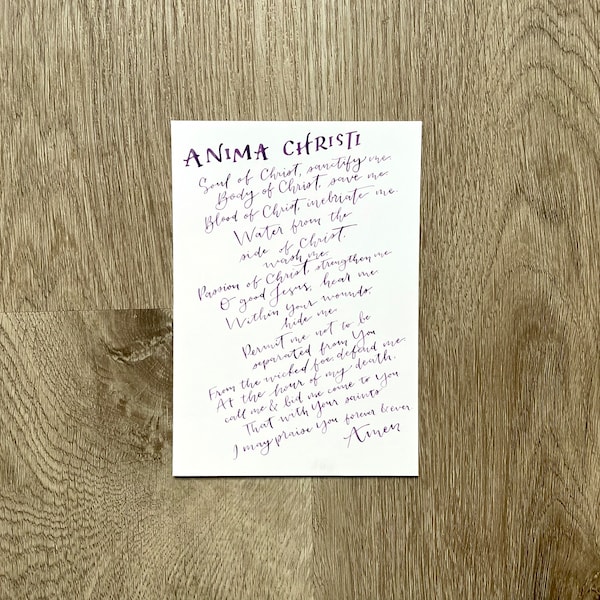 ANIMA CHRISTI
Soul of Christ, sanctify me.
Body of Christ, save me.
Blood of Christ, inebriate me.
Water from the
side of Christ,
wash me.
Passion of Christ, strengthen me.
O good Jesus, hear me
Within your wounds,
hide me.
Permit me not to be
separated from You
From the wicked foe, defend me.
At the hour of my death,
call me & bid me come to You
That with Your saints
I may praise You forever & ever.
Amen